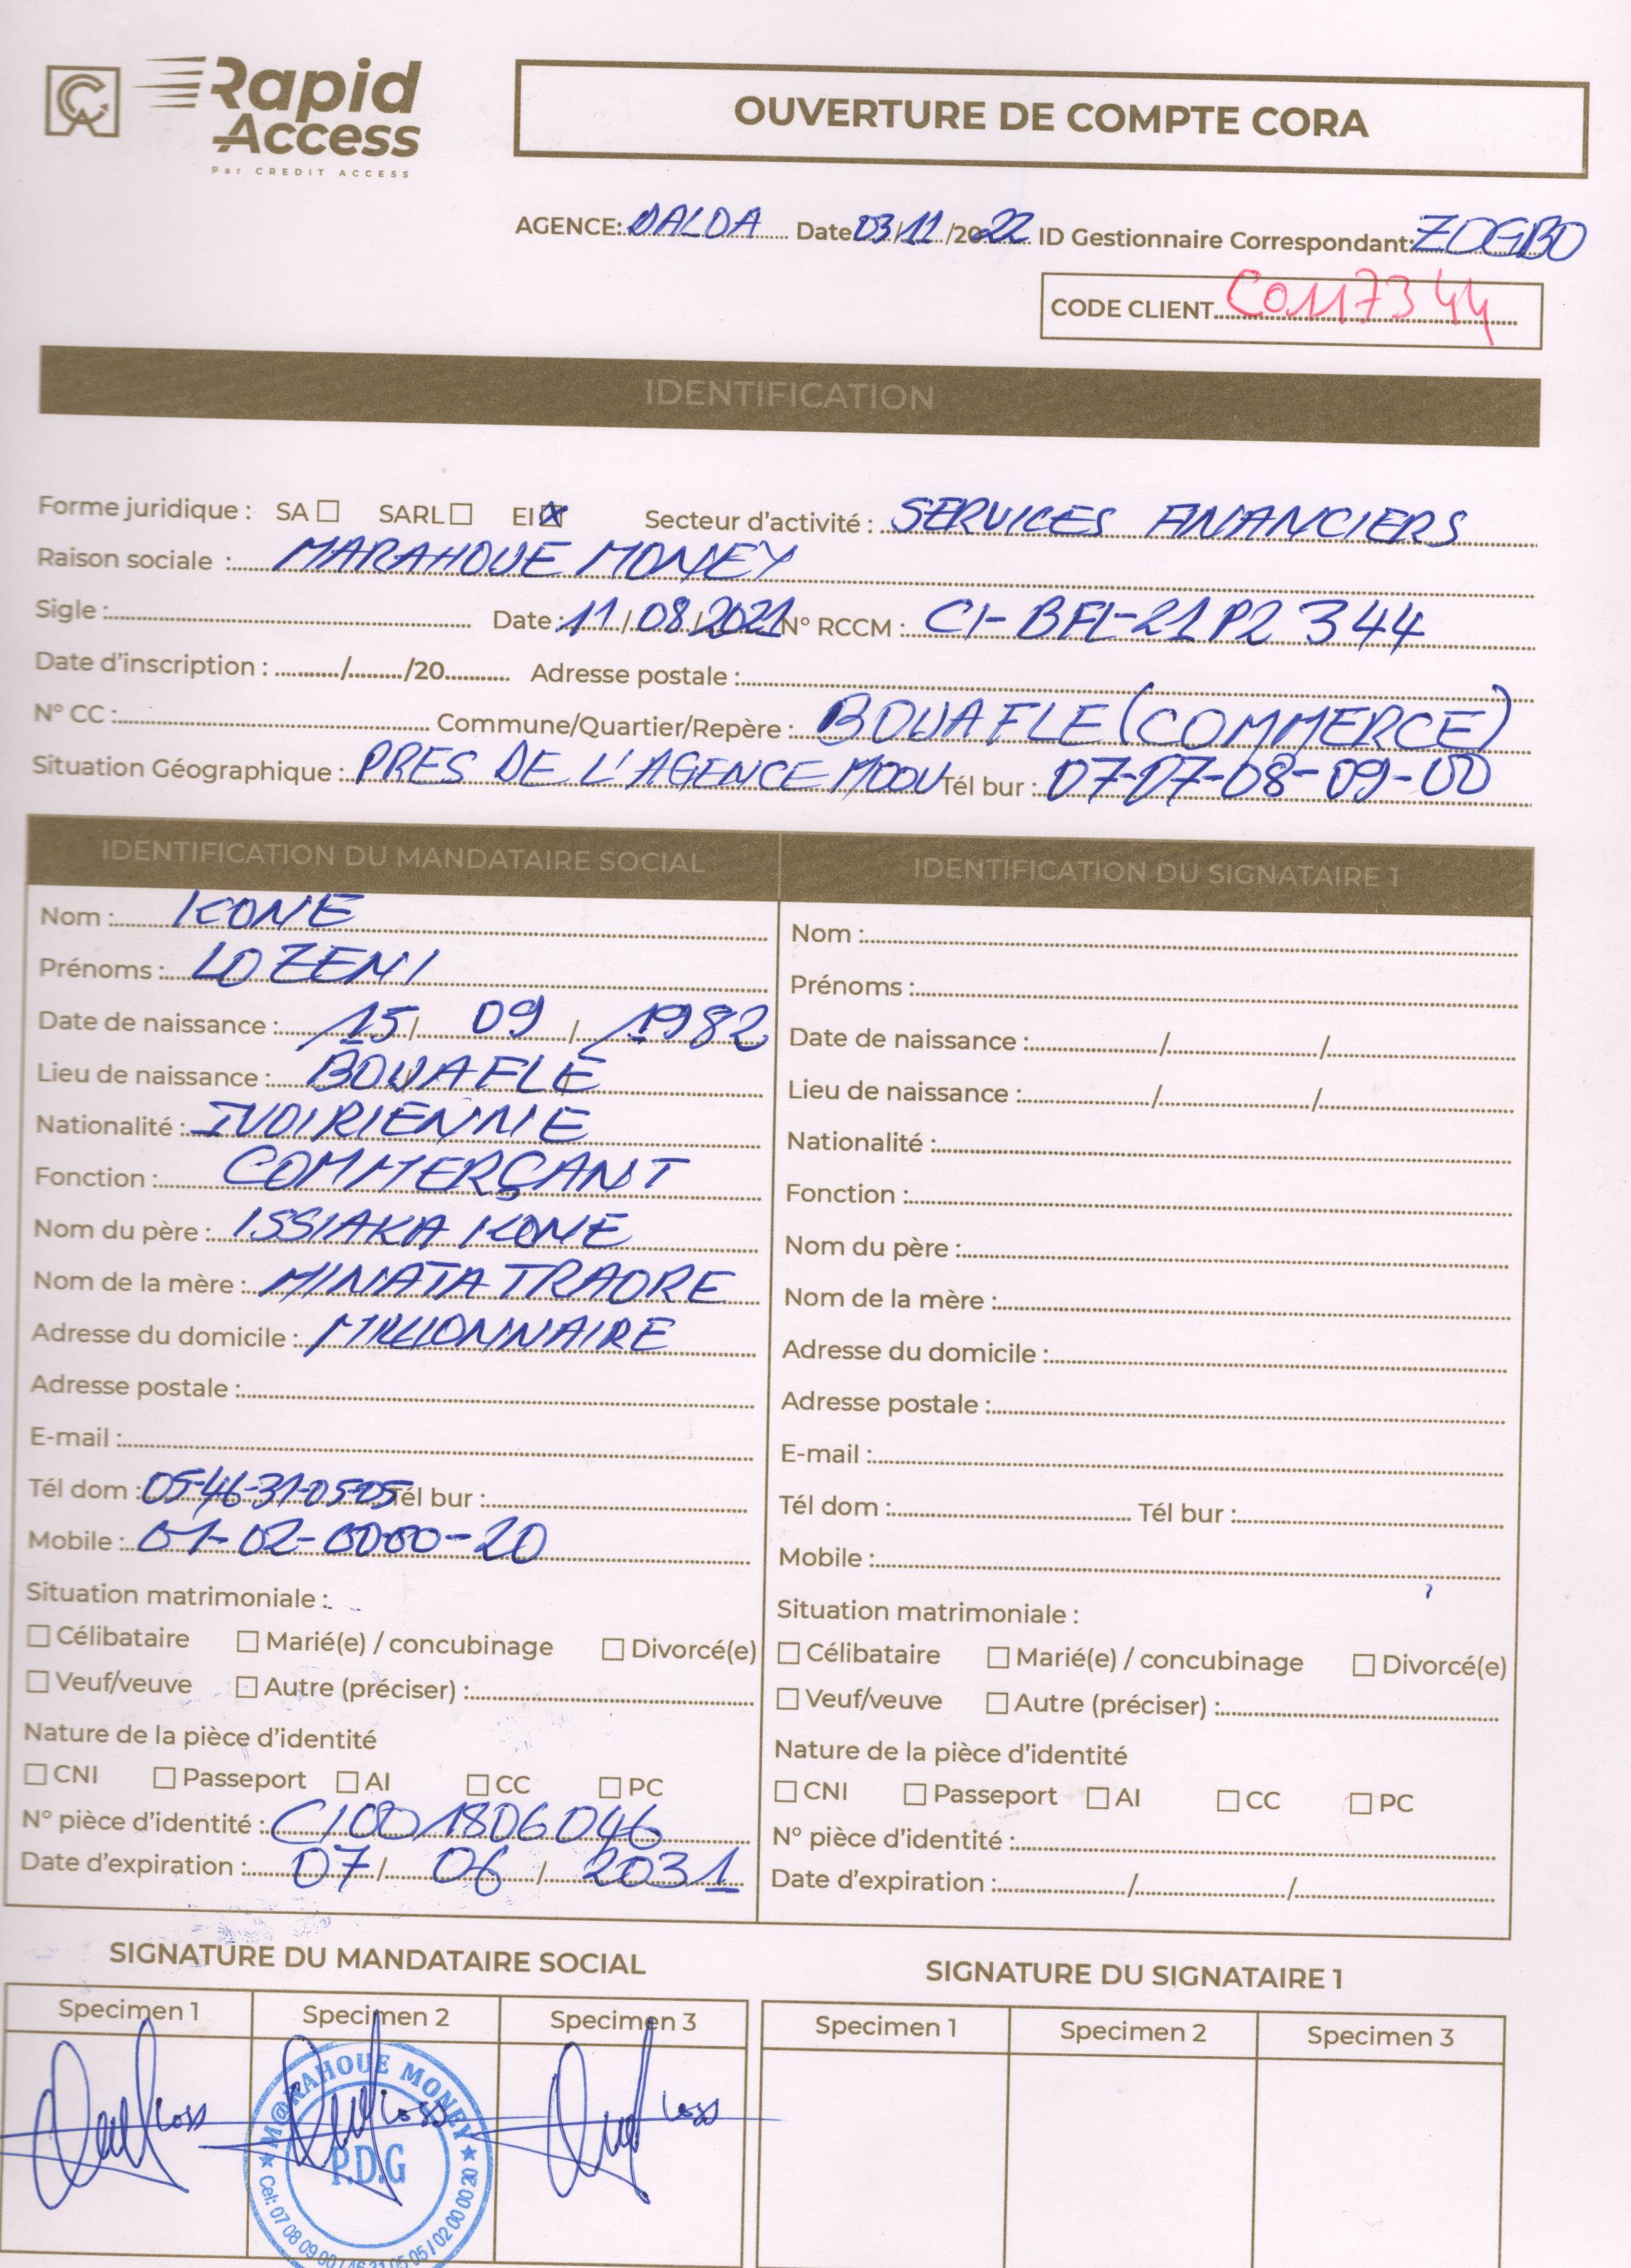 Rapid
Access
Par CREDIT ACCESS
OUVERTURE DE COMPTE CORA
AGENCE: DALDA Date 03/11/2022 ID Gestionnaire Correspondant: ZOGBO
CODE CLIENT C0117344
IDENTIFICATION
Forme juridique : SA ☐ SARL ☐ EI ☒ Secteur d'activité : SERVICES FINANCIERS
Raison sociale : MARAHOUE MONEY
Sigle : Date : 11/08/2021 N° RCCM : CI-BFL-21P2344
Date d'inscription : / /20 Adresse postale :
N° CC : Commune/Quartier/Repère : BOUAFLE (COMMERCE)
Situation Géographique : PRES DE L'AGENCE MOOV Tél bur : 07-07-08-09-00
IDENTIFICATION DU MANDATAIRE SOCIAL
Nom : KONE
Prénoms : LOZENI
Date de naissance : 15 / 09 / 1982
Lieu de naissance : BOUAFLE
Nationalité : IVOIRIENNE
Fonction : COMMERÇANT
Nom du père : ISSIAKA KONE
Nom de la mère : MINATA TRAORE
Adresse du domicile : MILLIONNAIRE
Adresse postale :
E-mail :
Tél dom : 05-46-31-05-05 Tél bur :
Mobile : 01-02-0000-20
Situation matrimoniale :
☐ Célibataire ☐ Marié(e) / concubinage ☐ Divorcé(e)
☐ Veuf/veuve ☐ Autre (préciser) :
Nature de la pièce d'identité
☐ CNI ☐ Passeport ☐ AI ☐ CC ☐ PC
N° pièce d'identité : CI001806046
Date d'expiration : 07 / 06 / 2031
IDENTIFICATION DU SIGNATAIRE 1
Nom :
Prénoms :
Date de naissance : / /
Lieu de naissance : / /
Nationalité :
Fonction :
Nom du père :
Nom de la mère :
Adresse du domicile :
Adresse postale :
E-mail :
Tél dom : Tél bur :
Mobile :
Situation matrimoniale :
☐ Célibataire ☐ Marié(e) / concubinage ☐ Divorcé(e)
☐ Veuf/veuve ☐ Autre (préciser) :
Nature de la pièce d'identité
☐ CNI ☐ Passeport ☐ AI ☐ CC ☐ PC
N° pièce d'identité :
Date d'expiration : / /
SIGNATURE DU MANDATAIRE SOCIAL
Specimen 1 Specimen 2 Specimen 3
M@RAHOUE MONEY
P.D.G
Cel: 07 08 09 00 / 46 31 05 05 / 02 00 00 20
SIGNATURE DU SIGNATAIRE 1
Specimen 1 Specimen 2 Specimen 3